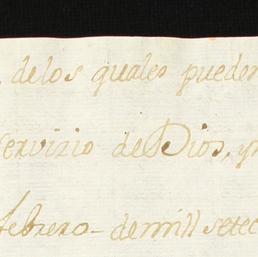 de los quales pueden
servizio de Dios, y
febrero - de mill setec